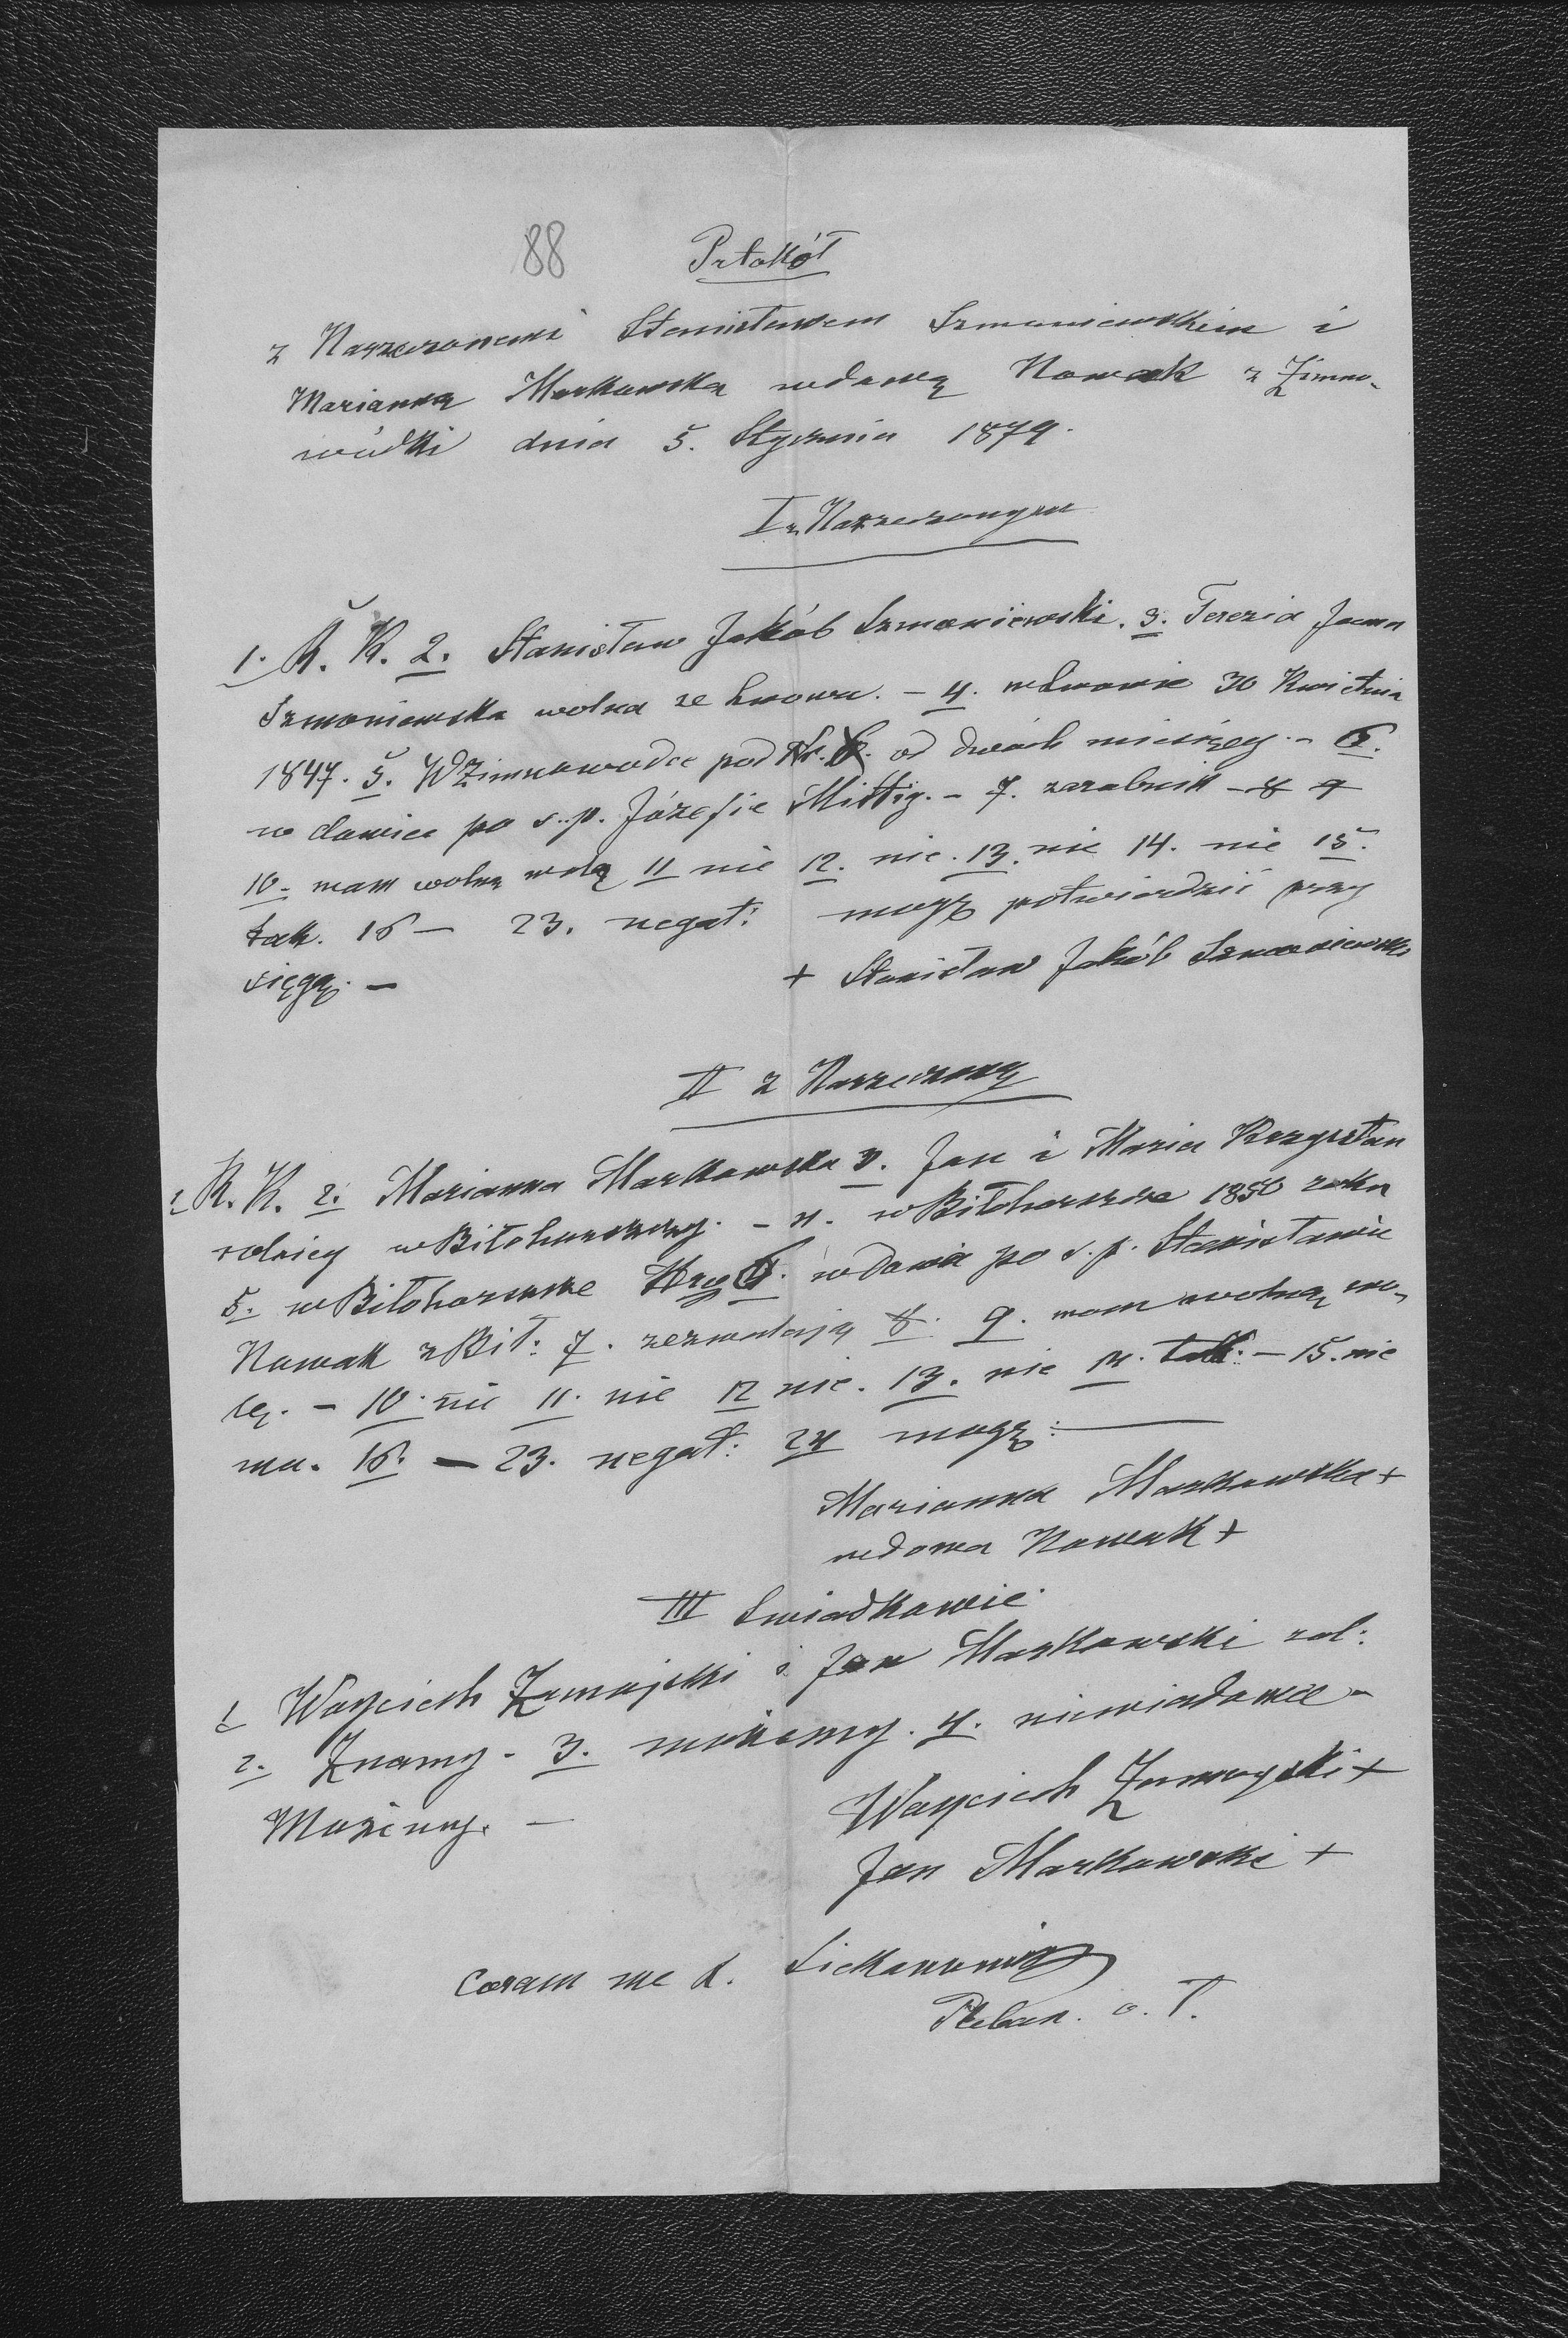 88 Prtokół
z Narzeczonemi Stanisławem Szmoniewskim i
Marianną Markowską wdową Nowak z Zimno-
wódki dnia 5. Stycznia 1879.
I z Narzeczonym
1. R. K. 2. Stanisław Jakób Szmoniewski. 3. Terezia Joana
Szmoniewska wolna ze Lwowa. – 4. we Lwowie 30 Kwietnia
1847. 5. W Zimnowodce pod Nr. od dwóch miesięcy. – 6.
wdowiec po s. p. Józefie Mittig. – 7. zarobnik – 8 9
10. mam wolną wolę 11 nie 12. nie. 13. nie 14. nie 15.
tak. 16 – 23. negat: mogę potwierdzić przy
sięgą. –
+ Stanisław Jakób Szmoniewski
II z Narzeczoną
1. R. K. 2. Marianna Markowska 3. Jan i Maria Krzyształ
rolnicy w Biłohorszczy. – 4. w Biłohorszcze 1850 roku
5. w Biłohorszcze 6. wdowa po s. p. Stanisławie
Nowak z Bił: 7. zezwalają 8. 9. mam wolną wo-
lę. – 10. nie 11. nie 12 nie. 13. nie 14. tak. – 15. nie
ma. 16. – 23. negat: 24 mogę. –
Marianna Markowska +
wdowa Nowak +
III Swiadkowie
1 Woyciech Zamojski i Jan Markowski rol:
2. Znamy. 3. możemy. 4. niewiadome –
Możemy. –
Woyciech Zamoyski +
Jan Markowski +
Coram me X.
Pleban. o. T.